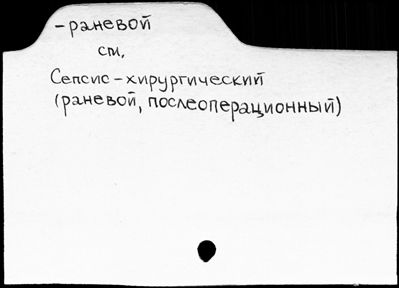 -раневой
см.
Сепсис-хирургический
(раневой, послеоперационный)